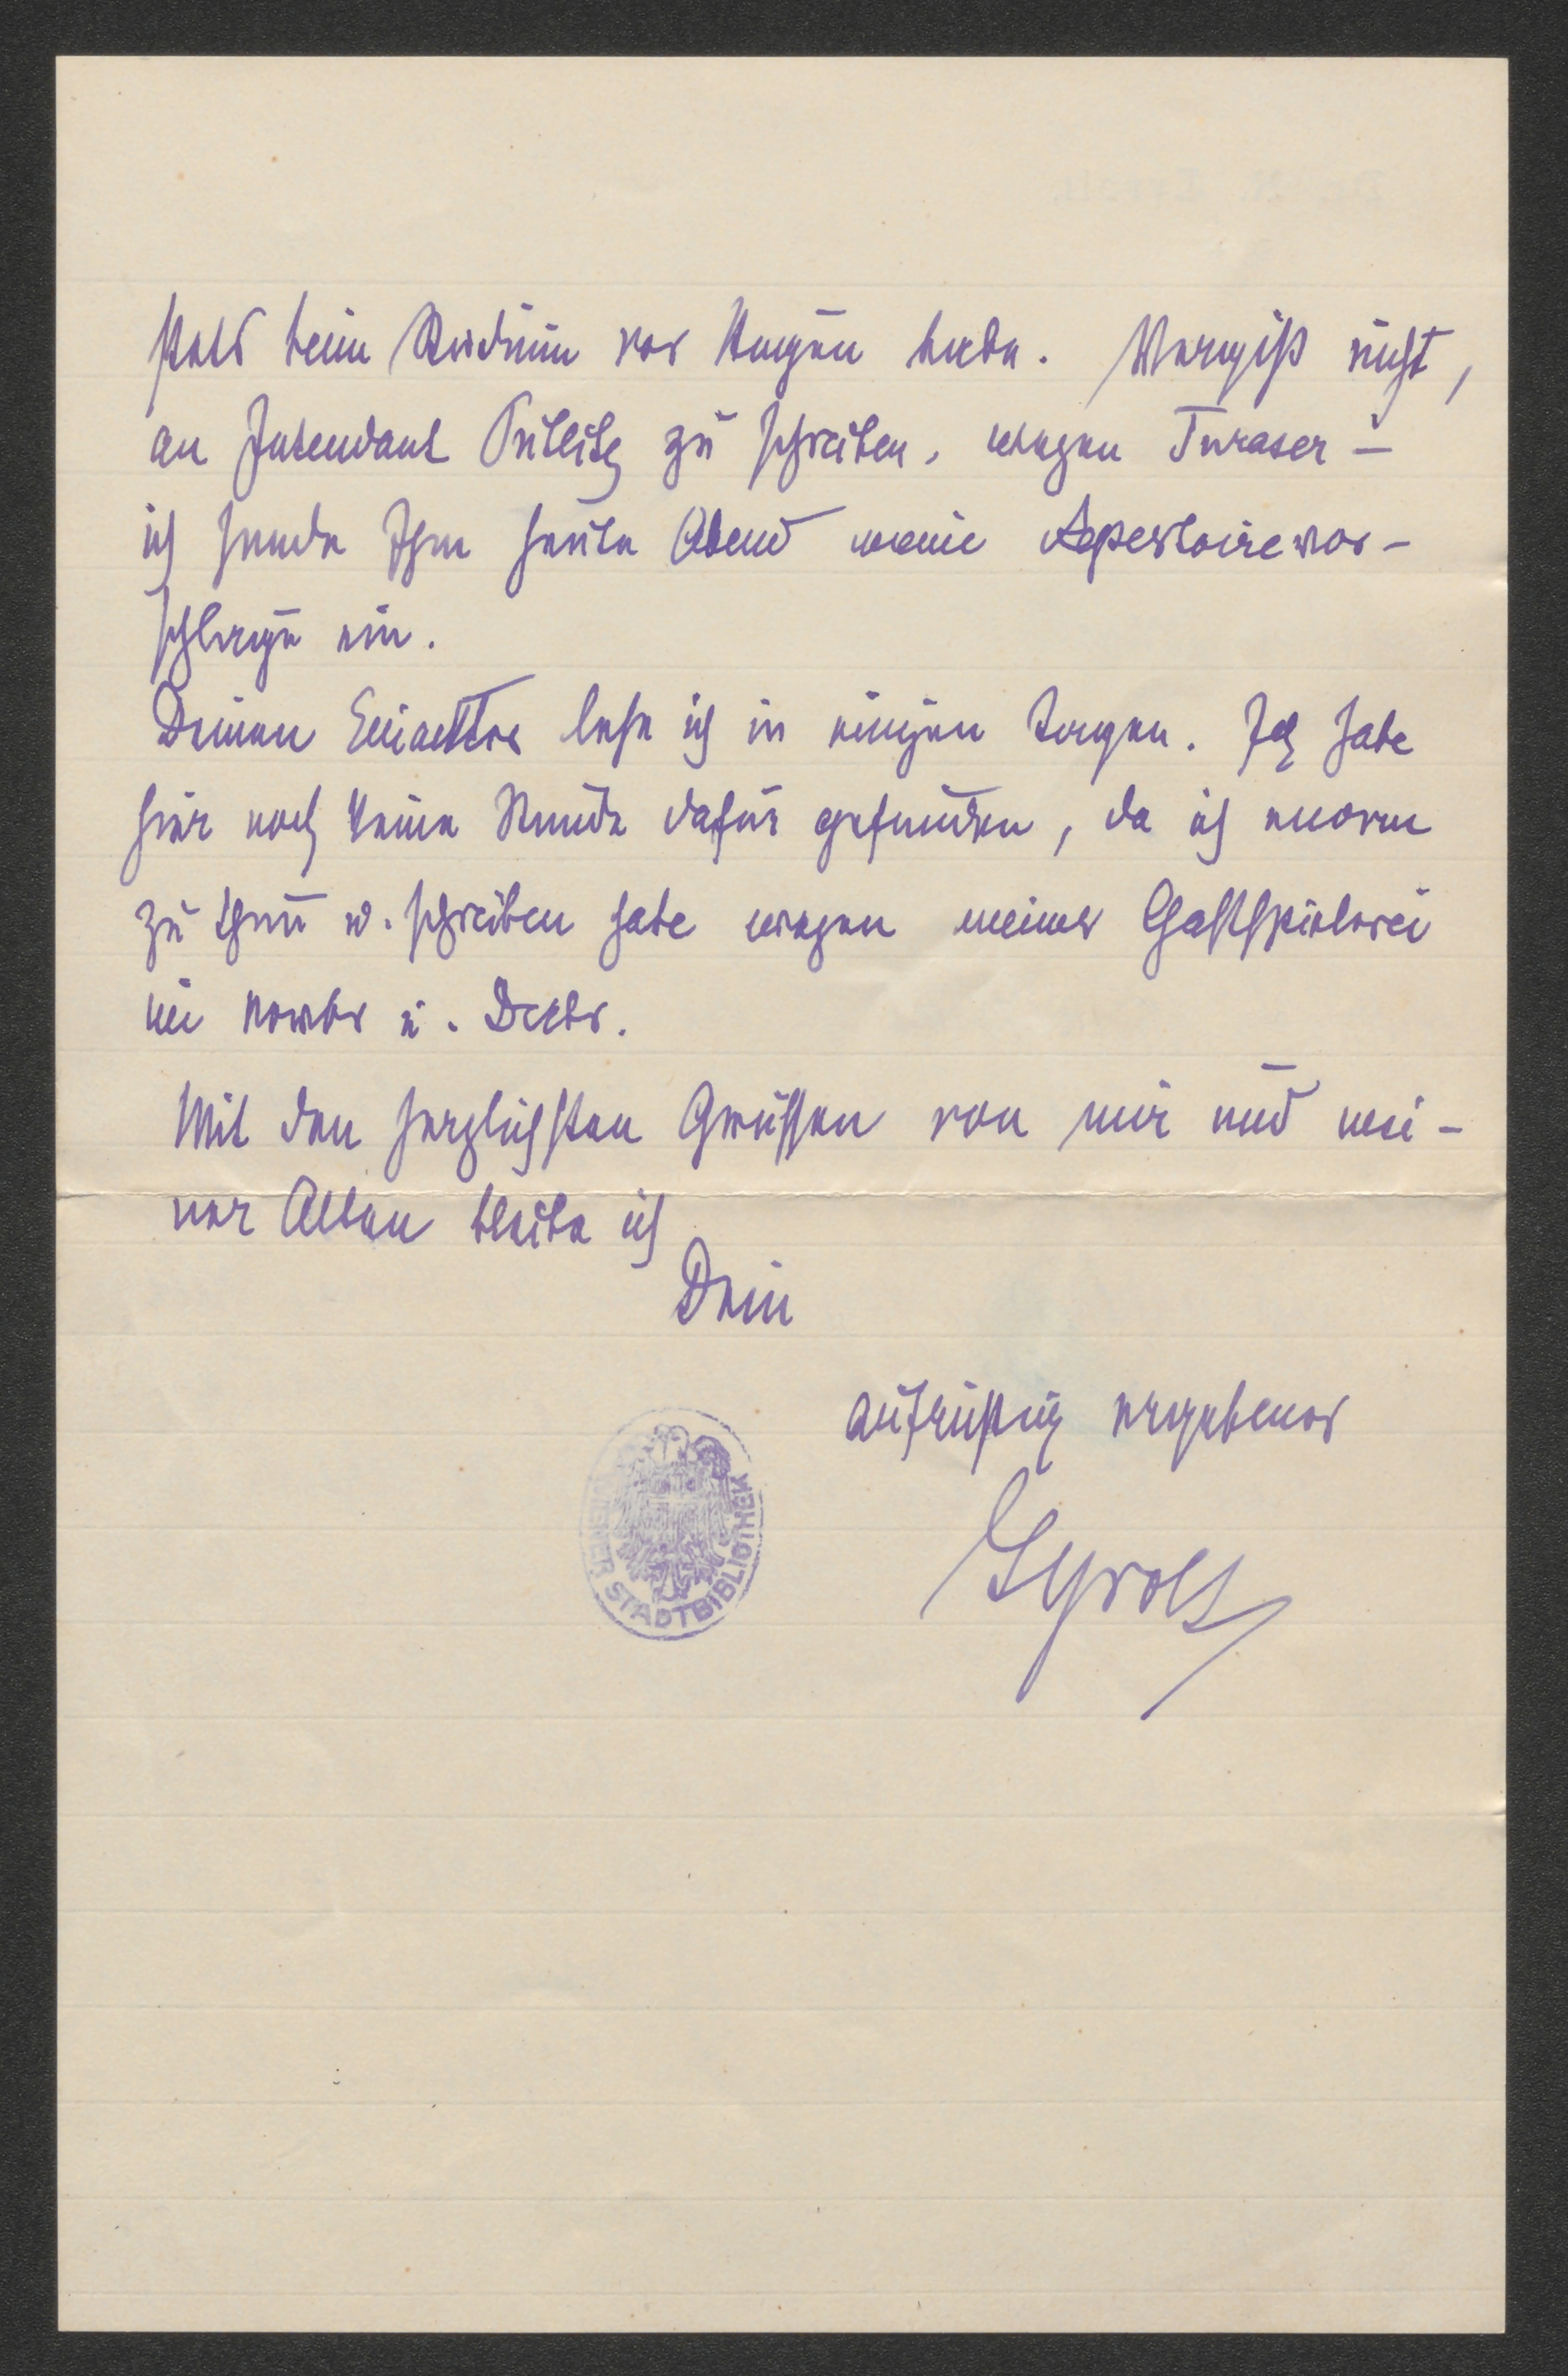 stets beim Studium vor Augen habe. Vergiß nicht,
an Intendant Putlitz zu schreiben, wegen Turaser –
ich sende Ihm heute Abend meine Repertoirevor-
schläge ein.
Deinen Einakter lese ich in einigen Tagen. Ich habe
hier noch keine Stunde dafür gefunden, da ich enorm
zu thun u. schreiben habe wegen meiner Gastspielerei
im Novbr u. Decbr.
Mit den herzlichsten Grüssen von mir und mei-
ner Alten bleibe ich
Dein
aufrichtig ergebener
Tyrolt
WIENER STADTBIBLIOTHEK